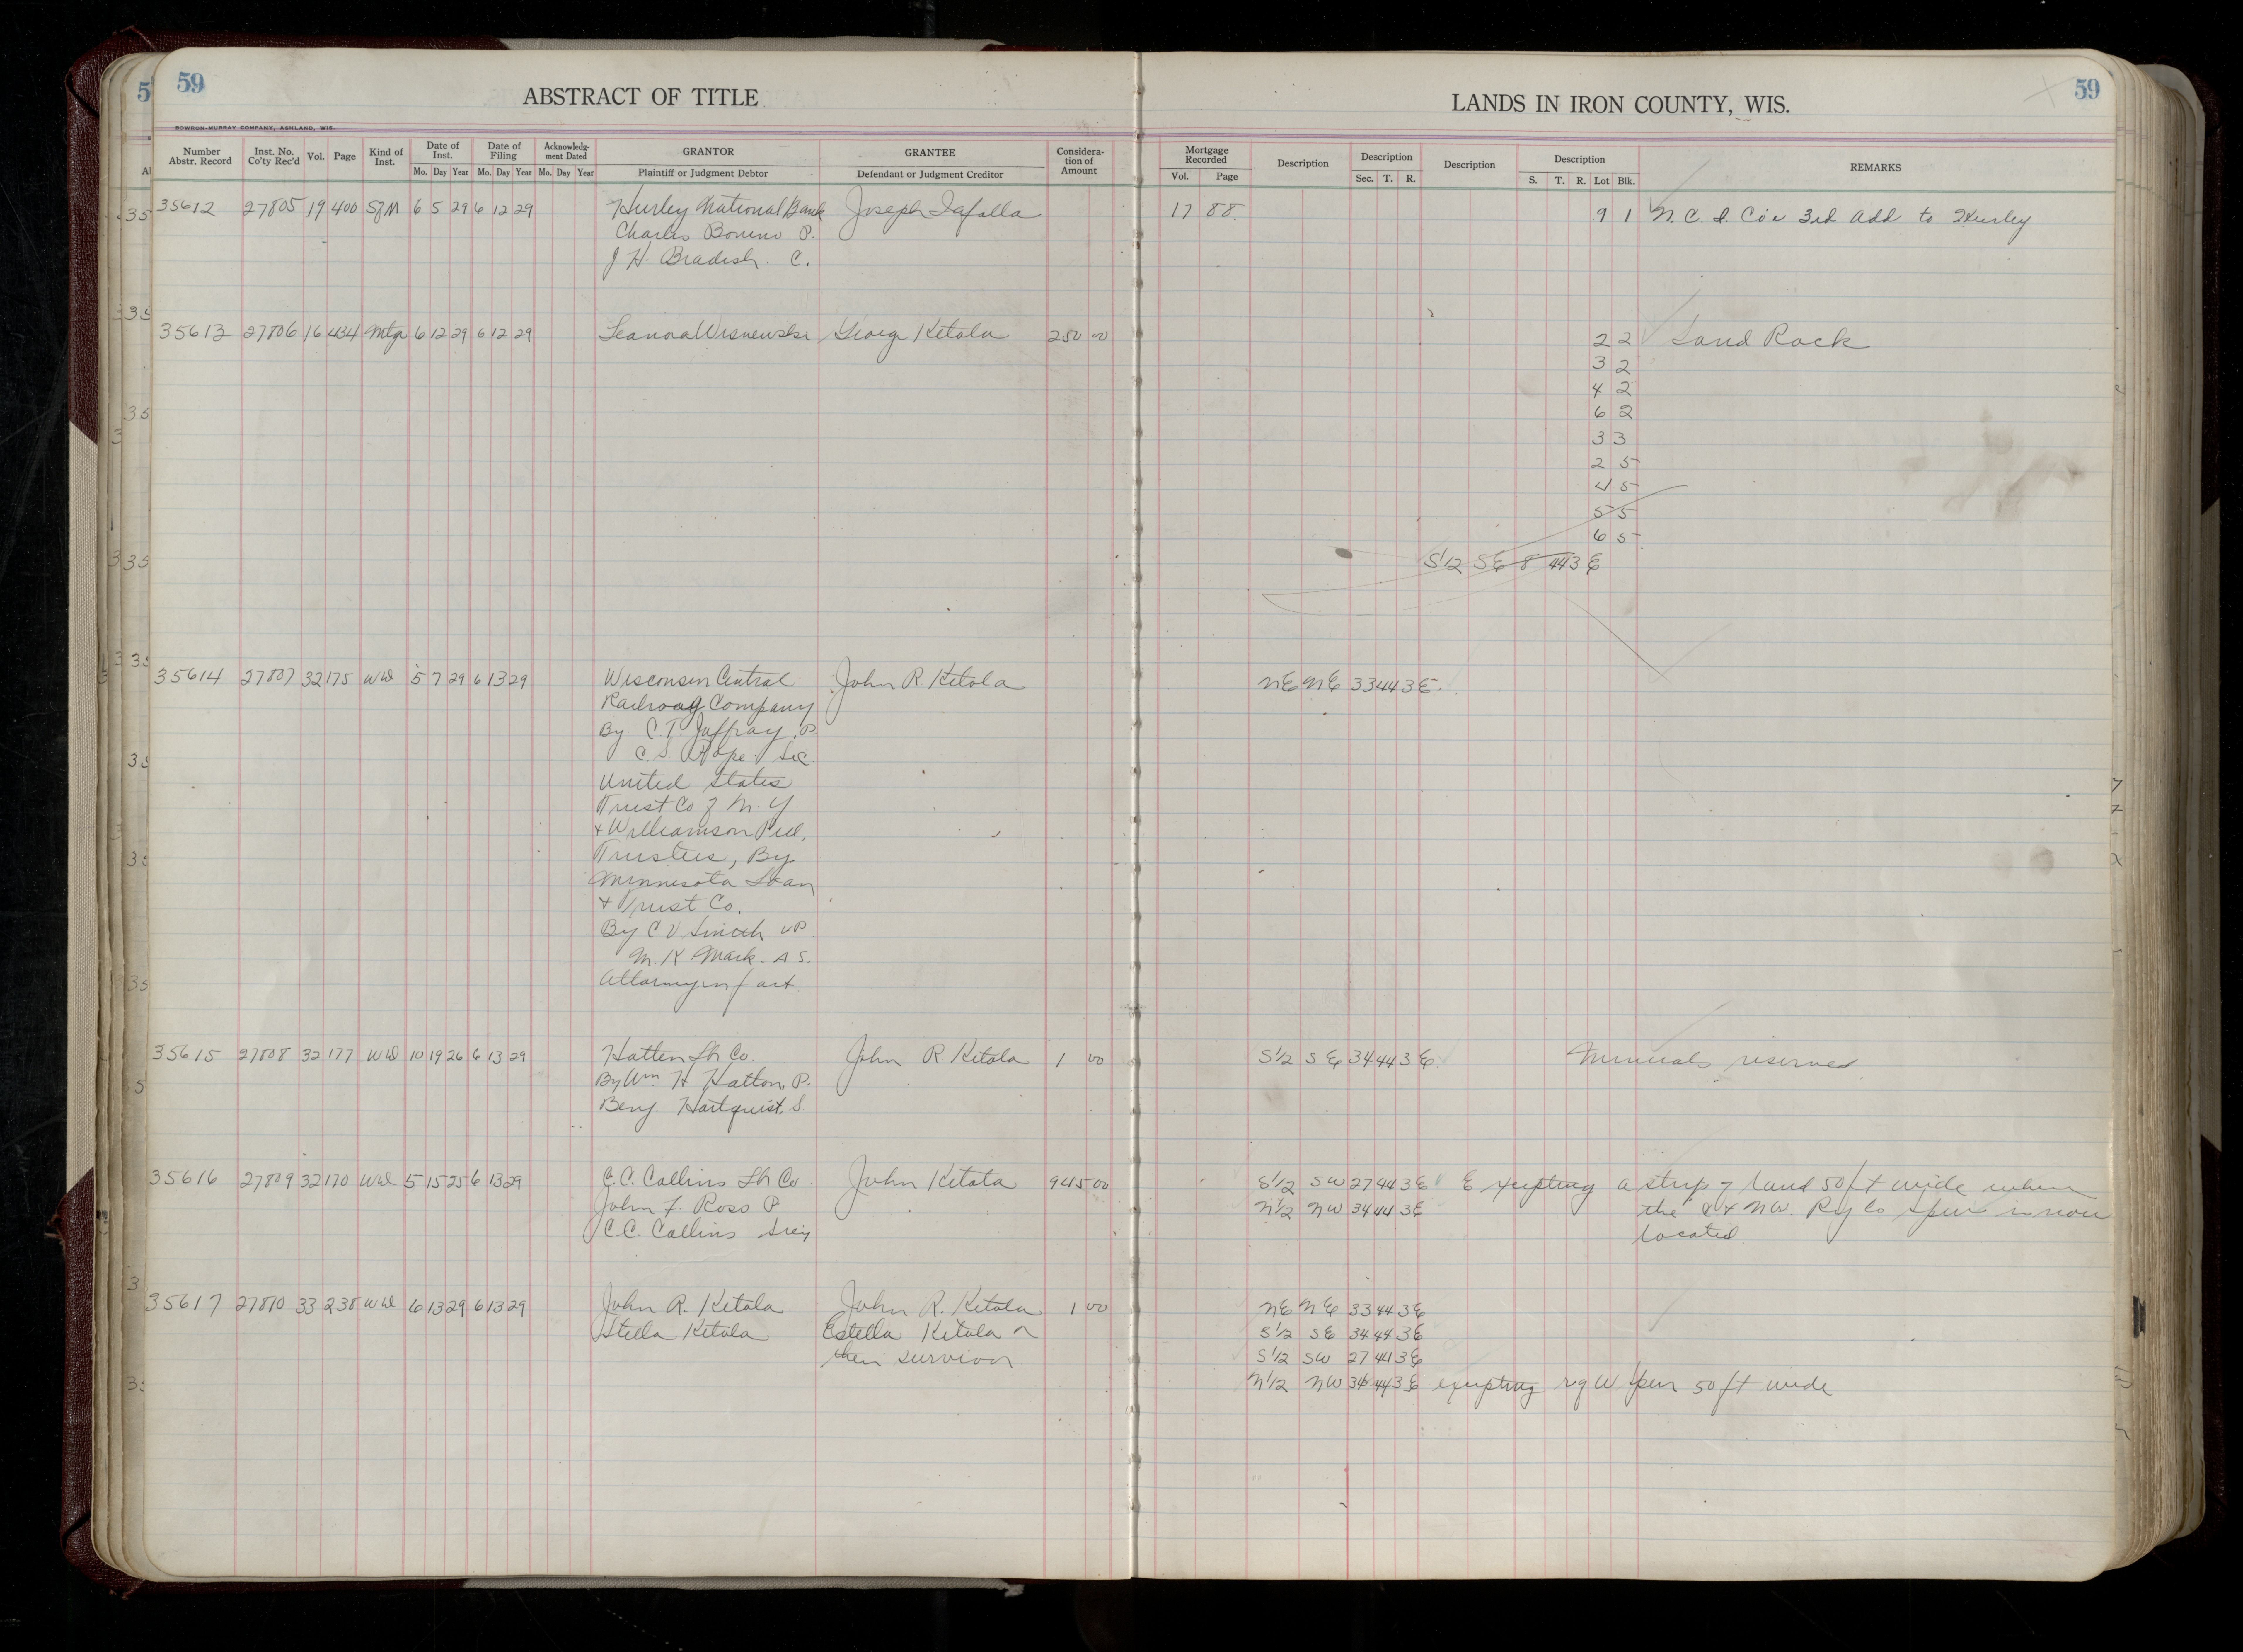 59
ABSTRACT OF TITLE
LANDS IN IRON COUNTY, WIS.
59
BOWRON-MURRAY COMPANY, ASHLAND, WIS.
Number Abstr. Record Inst. No. Co'ty Rec'd Vol. Page Kind of Inst. Date of Inst. Mo. Day Year Date of Filing Mo. Day Year Acknowledg-ment Dated Mo. Day Year GRANTOR Plaintiff or Judgment Debtor GRANTEE Defendant or Judgment Creditor Considera-tion of Amount Mortgage Recorded Vol. Page Description Description Sec. T. R. Description Description S. T. R. Lot Blk. REMARKS
35612 27805 19 400 SfM 6 5 29 6 12 29 Hurley National Bank Joseph 17 88. 9 1 N. C. I. Co's 3rd Add to Hurley
Charles Bonino P.
J H. Bradish C.
35613 27806 16 434 Mtg 6 12 29 6 12 29 Leanora Wisnewski Georg Ketola 250 00 2 2 Sand Rock
3 2
4 2
6 2
3 3
2 5
4 5
5 5
6 5
S1/2 SE 8 44 3 E
35614 27807 32 175 WD 5 7 29 6 13 29 Wisconsin Central John R Ketola NE NE 33 44 3 E.
Railroad Company
By C. T. Jaffray P.
C. S. Pope Sec.
United States
Trust Co of N Y
+ Williamson Pell,
Trustees, By
Minnesota Loan
+ Trust Co.
By C V Smith VP.
M. K. Mark. A S.
Attorney in fact.
35615 27808 32 177 WD 10 19 26 6 13 29 Hatten Lbr Co. John R Ketola 1 00 S1/2 SE 34 44 3 E. Minerals reserved
By Wm H Hatton, P.
Benj. Hartquist, S.
35616 27809 32 170 WD 5 15 25 6 13 29 C. C. Collins Lbr Co John Ketola 945 00 S1/2 SW 27 44 3 E Excepting a strip of land 50 ft wide where
John F. Ross P N1/2 NW 34 44 3 E the C + NW. Ry Co spur is now
C C. Collins Secy located.
35617 27810 33 238 WD 6 13 29 6 13 29 John R. Ketola John R. Ketola 1 00 NE NE 33 44 3 E
Stella Ketola Estella Ketola or S1/2 SE 34 44 3 E
their survivor S1/2 SW 27 44 3 E
N1/2 NW 34 44 3 E excepting r of W spur 50 ft wide